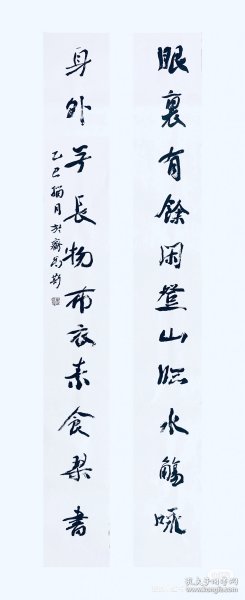 眼裏有餘閑登山臨水觴咏
身外无長物布衣素食琴書
乙巳
孔夫子旧书网